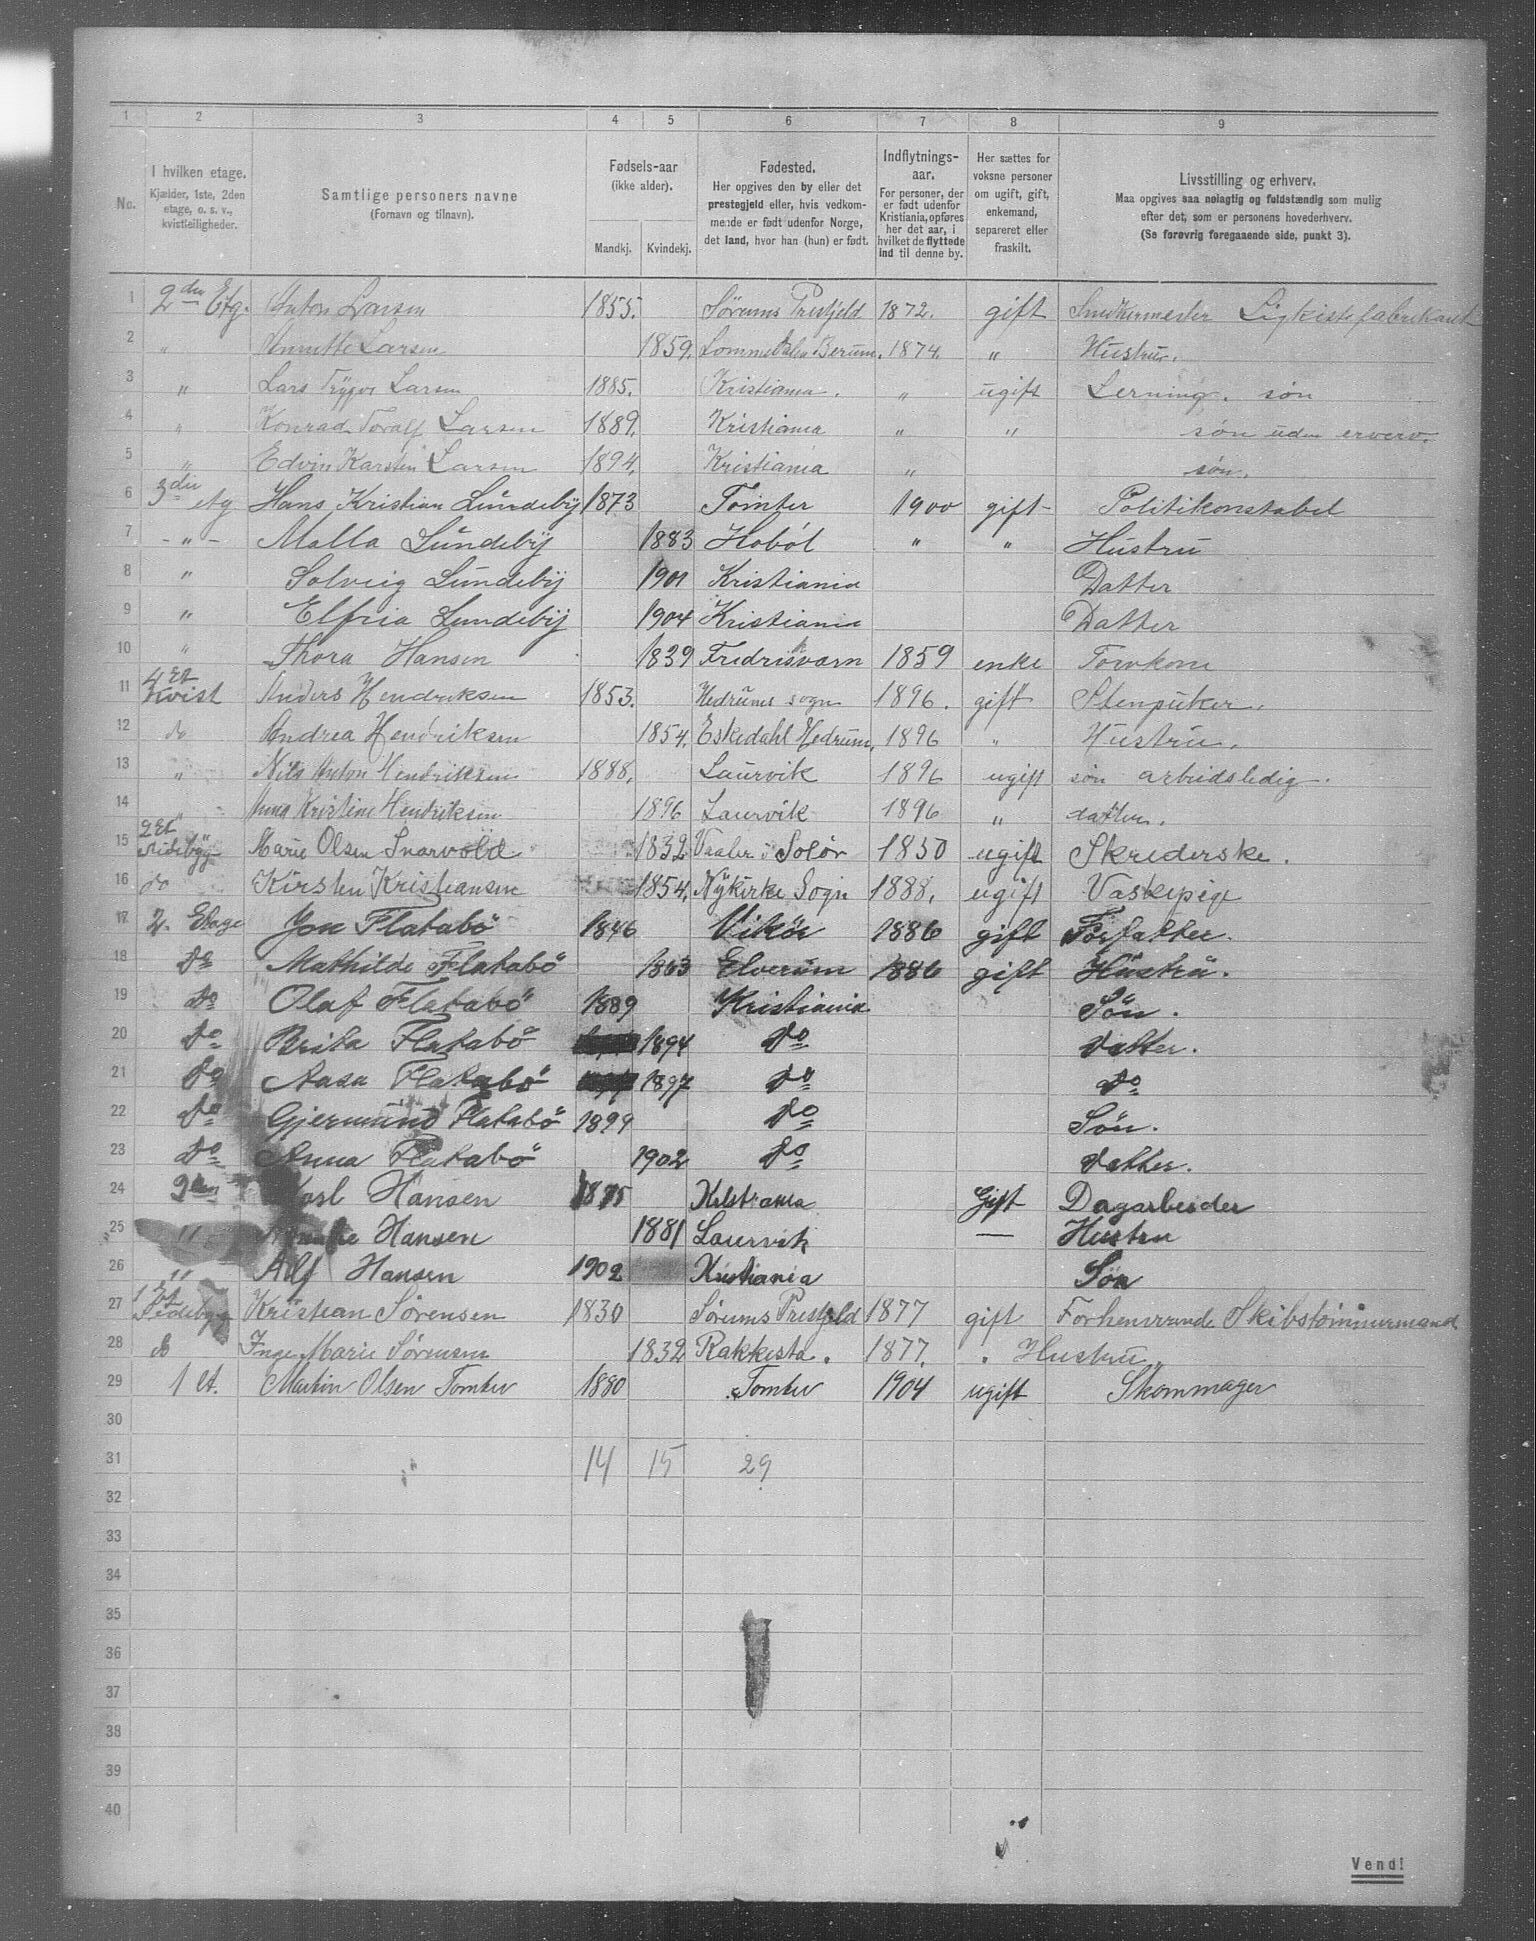 1 2 3 4 5 6 7 8 9
No.
I hvilken etage.
Kjælder, 1ste, 2den
etage, o. s. v.,
kvistleiligheder.
Samtlige personers navne
(Fornavn og tilnavn).
Fødsels-aar
(ikke alder).
Mandkj. Kvindekj.
Fødested.
Her opgives den by eller det
prestegjeld eller, hvis vedkom-
mende er født udenfor Norge,
det land, hvor han (hun) er født.
Indflytnings-
aar.
For personer, der
er født udenfor
Kristiania, opføres
her det aar, i
hvilket de flyttede
ind til denne by.
Her sættes for
voksne personer
om ugift, gift,
enkemand,
separeret eller
fraskilt.
Livsstilling og erhverv.
Maa opgives saa nøiagtig og fuldstændig som mulig
efter det, som er personens hovederhverv.
(Se forøvrig foregaaende side, punkt 3).
1 2den Etg. Anton Larsen 1855. Sørums Prestjeld 1872. gift Snedkermester Ligkistefabrikant
2 " Annette Larsen 1859. Lommedalen Berum. 1874. " Hustru.
3 " Lars Trygve Larsen 1885. Kristiania. " ugift Lerning. søn
4 " Konrad Toralf Larsen 1889. Kristiania " " søn uden erverv.
5 " Edvin Karsten Larsen 1894. Kristiania " søn.
6 3die etg Hans Kristian Lundeby 1873 Tomter 1900 gift Politikonstabel
7 - " - Malla Lundeby 1883 Hobøl " " Hustru
8 " Solveig Lundeby 1901 Kristiania Datter
9 " Elfria Lundeby 1904 Kristiania Datter
10 " Thora Hansen 1839 Fredrisværn 1859 enke
11 4 Et Kvist Anders Hendriksen 1853. Hedrums sogn 1896. gift Stenpuker.
12 do Andrea Hendriksen 1854. Eskedahl Hedrum. 1896 " Hustru.
13 " Nils Anton Hendriksen 1888. Laurvik 1896 ugift søn arbeidsledig.
14 " Anna Kristine Hendriksen 1896 Laurvik 1896 " datter.
15 2 Et Sidebyg Marie Olsen Snarvold 1832 Vaaler i Solør 1850 ugift Skrederske.
16 do Kirsten Kristiansen 1854. Nykirke Sogn 1888. ugift Vaskepige
17 2. Etage Jon Flatabø 1846 Vikør 1886 gift Forfatter.
18 Do Mathilde Flatabø 1863 Elverum 1886 gift Hustru.
19 Do Olaf Flatabø 1889 Kristiania Søn.
20 Do Brita Flatabø 1894 Do Datter.
21 Do Aasa Flatabø 1897 Do Do
22 Do Gjermund Flatabø 1899 Do Søn.
23 Do Anna Flatabø 1902 Do Datter.
24 Karl Hansen 1875 Kristiania Gift Dagarbeider
25 " Hansen 1881 Laurvik — Hustru
26 " Alf Hansen 1902 Kristiania Søn
27 1 Et Sidebyg Kristian Sørensen 1830 Sørums Prestjeld 1877 gift Forhenværende Skibstømmermand
28 do Inge Marie Sørensen 1832 Rakkesta. 1877. " Hustru
29 1 et. Martin Olsen Tomter 1880 Tomter 1904 ugift Skommager
30
31 14 15 29
32
33
34
35
36
37
38
39
40
Vend!